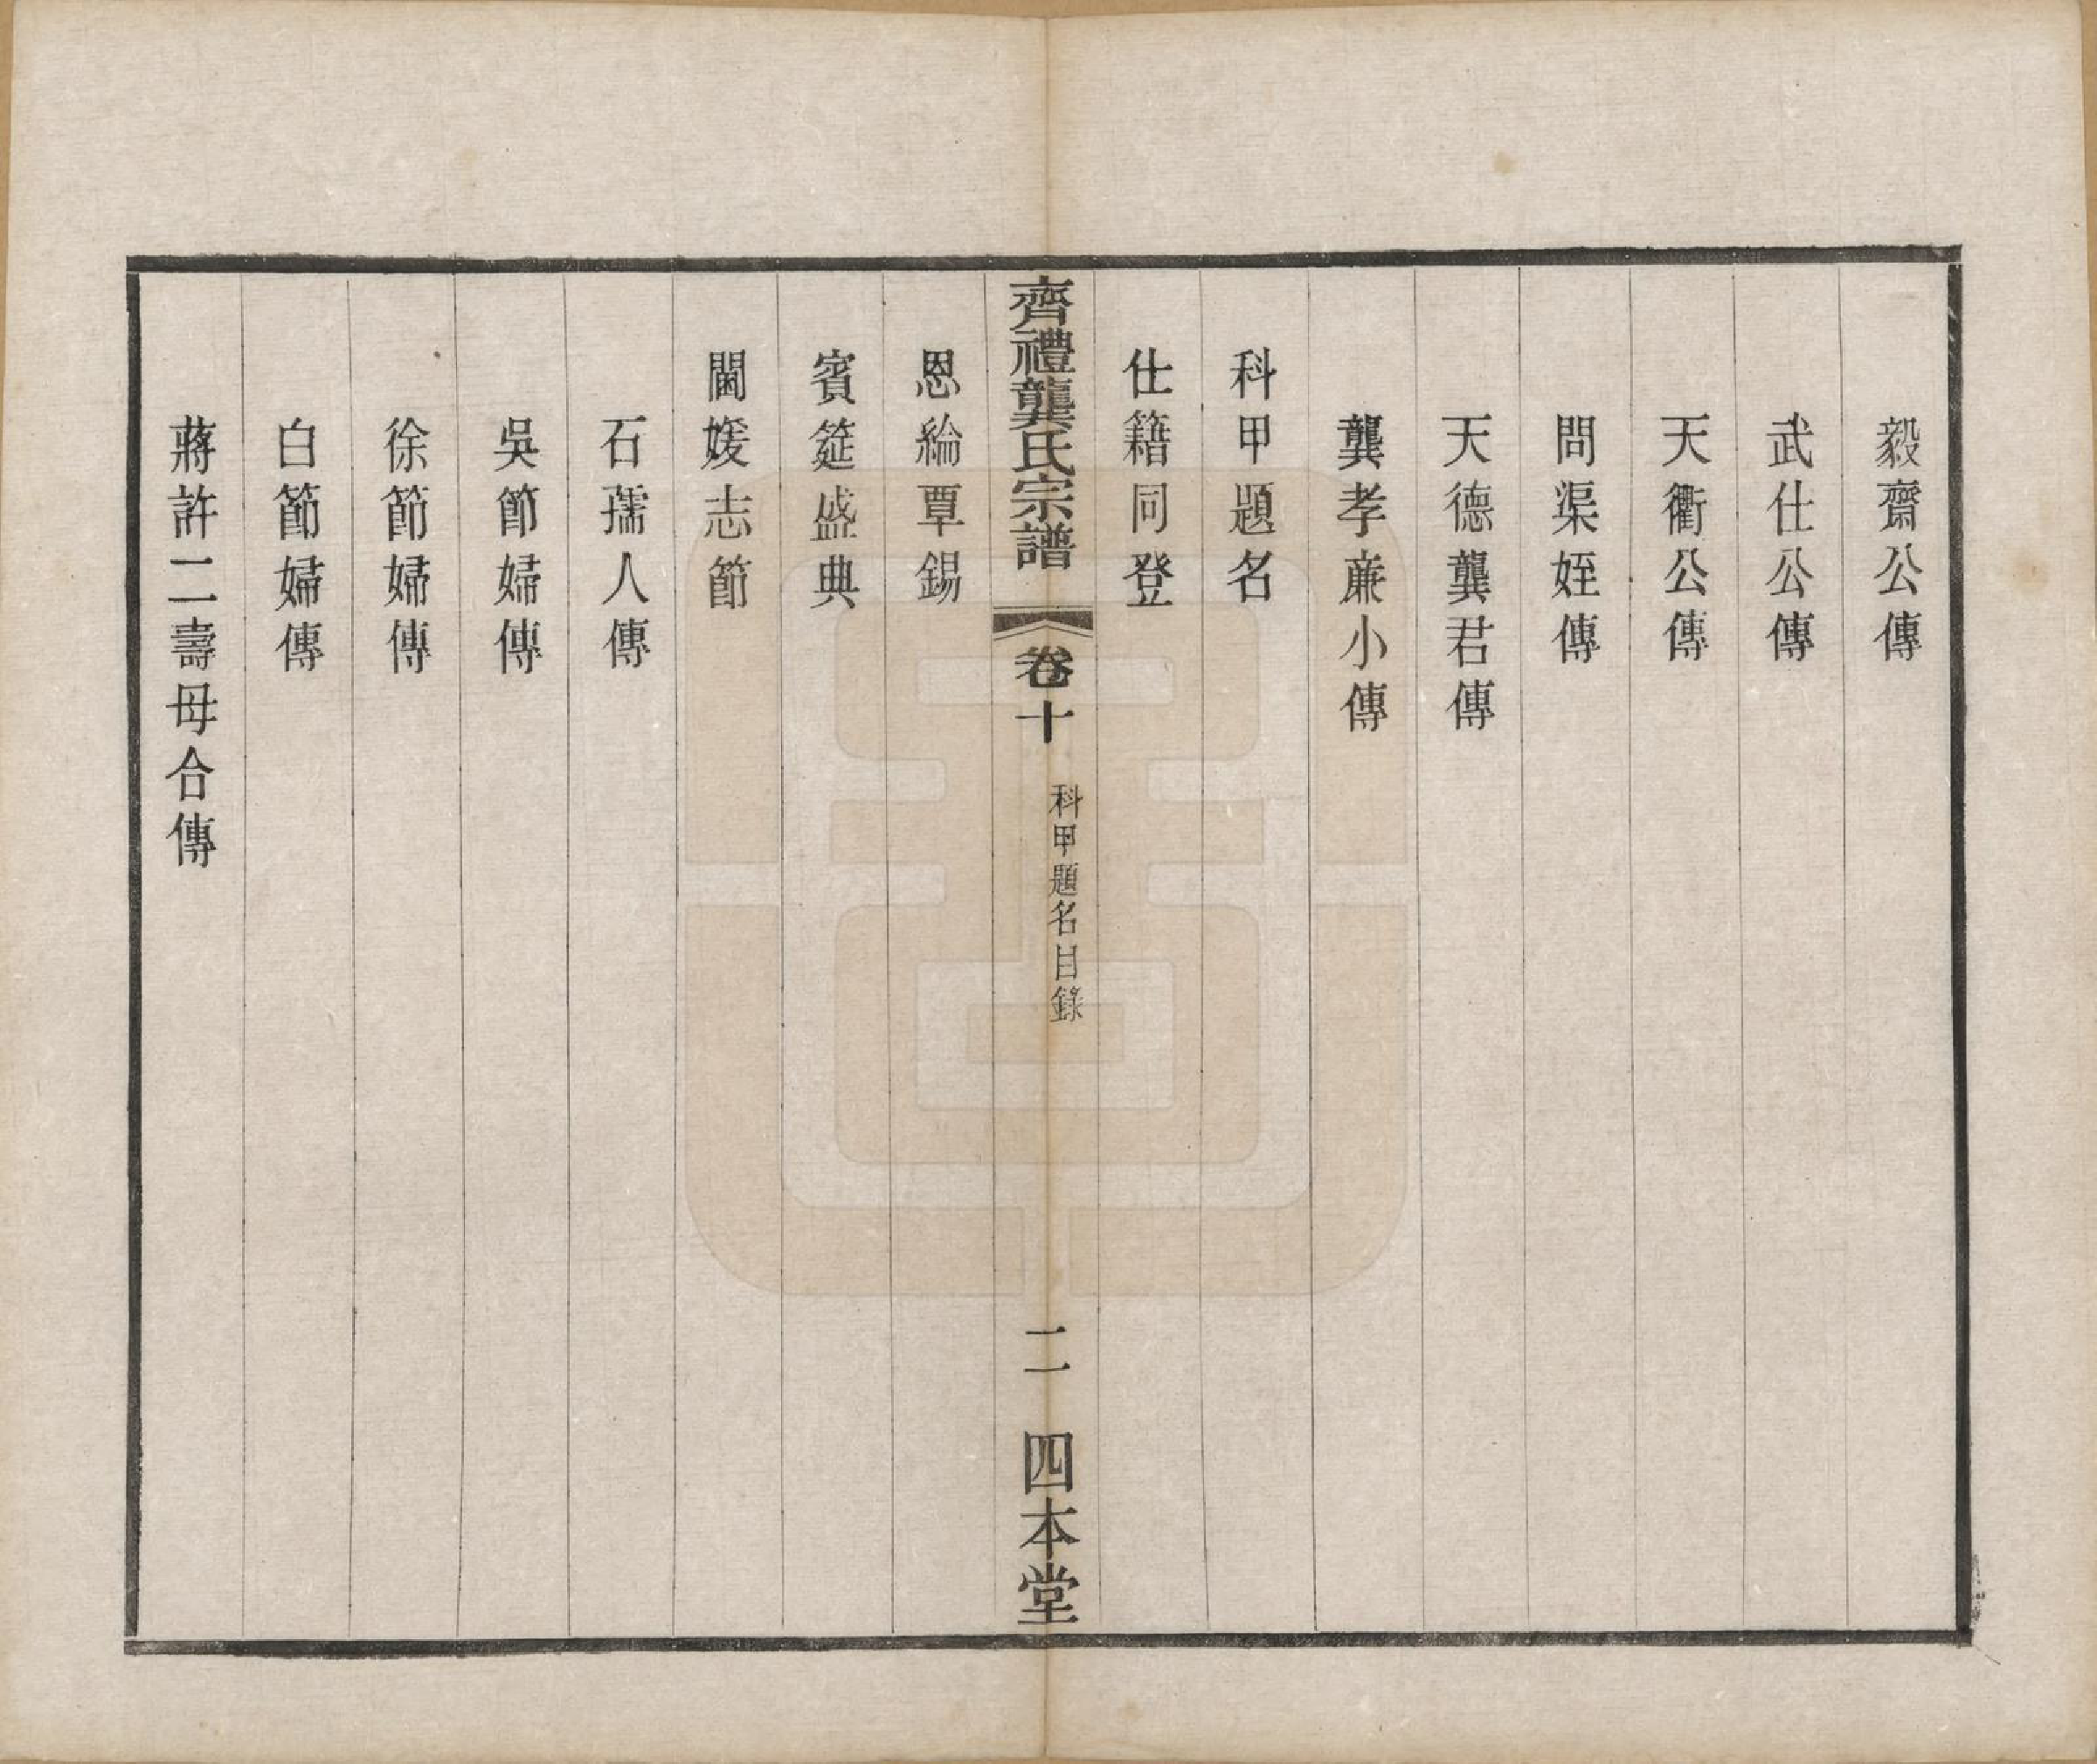 毅齋公傳
武仕公傳
天衢公傳
問渠姪傳
天德龔君傳
龔孝廉小傳
科甲題名
仕籍同登
齊禮龔氏宗譜 卷十 科甲題名目錄 二 四本堂
恩綸覃錫
賓筵盛典
閫媛志節
石孺人傳
吳節婦傳
徐節婦傳
白節婦傳
蔣許二壽母合傳